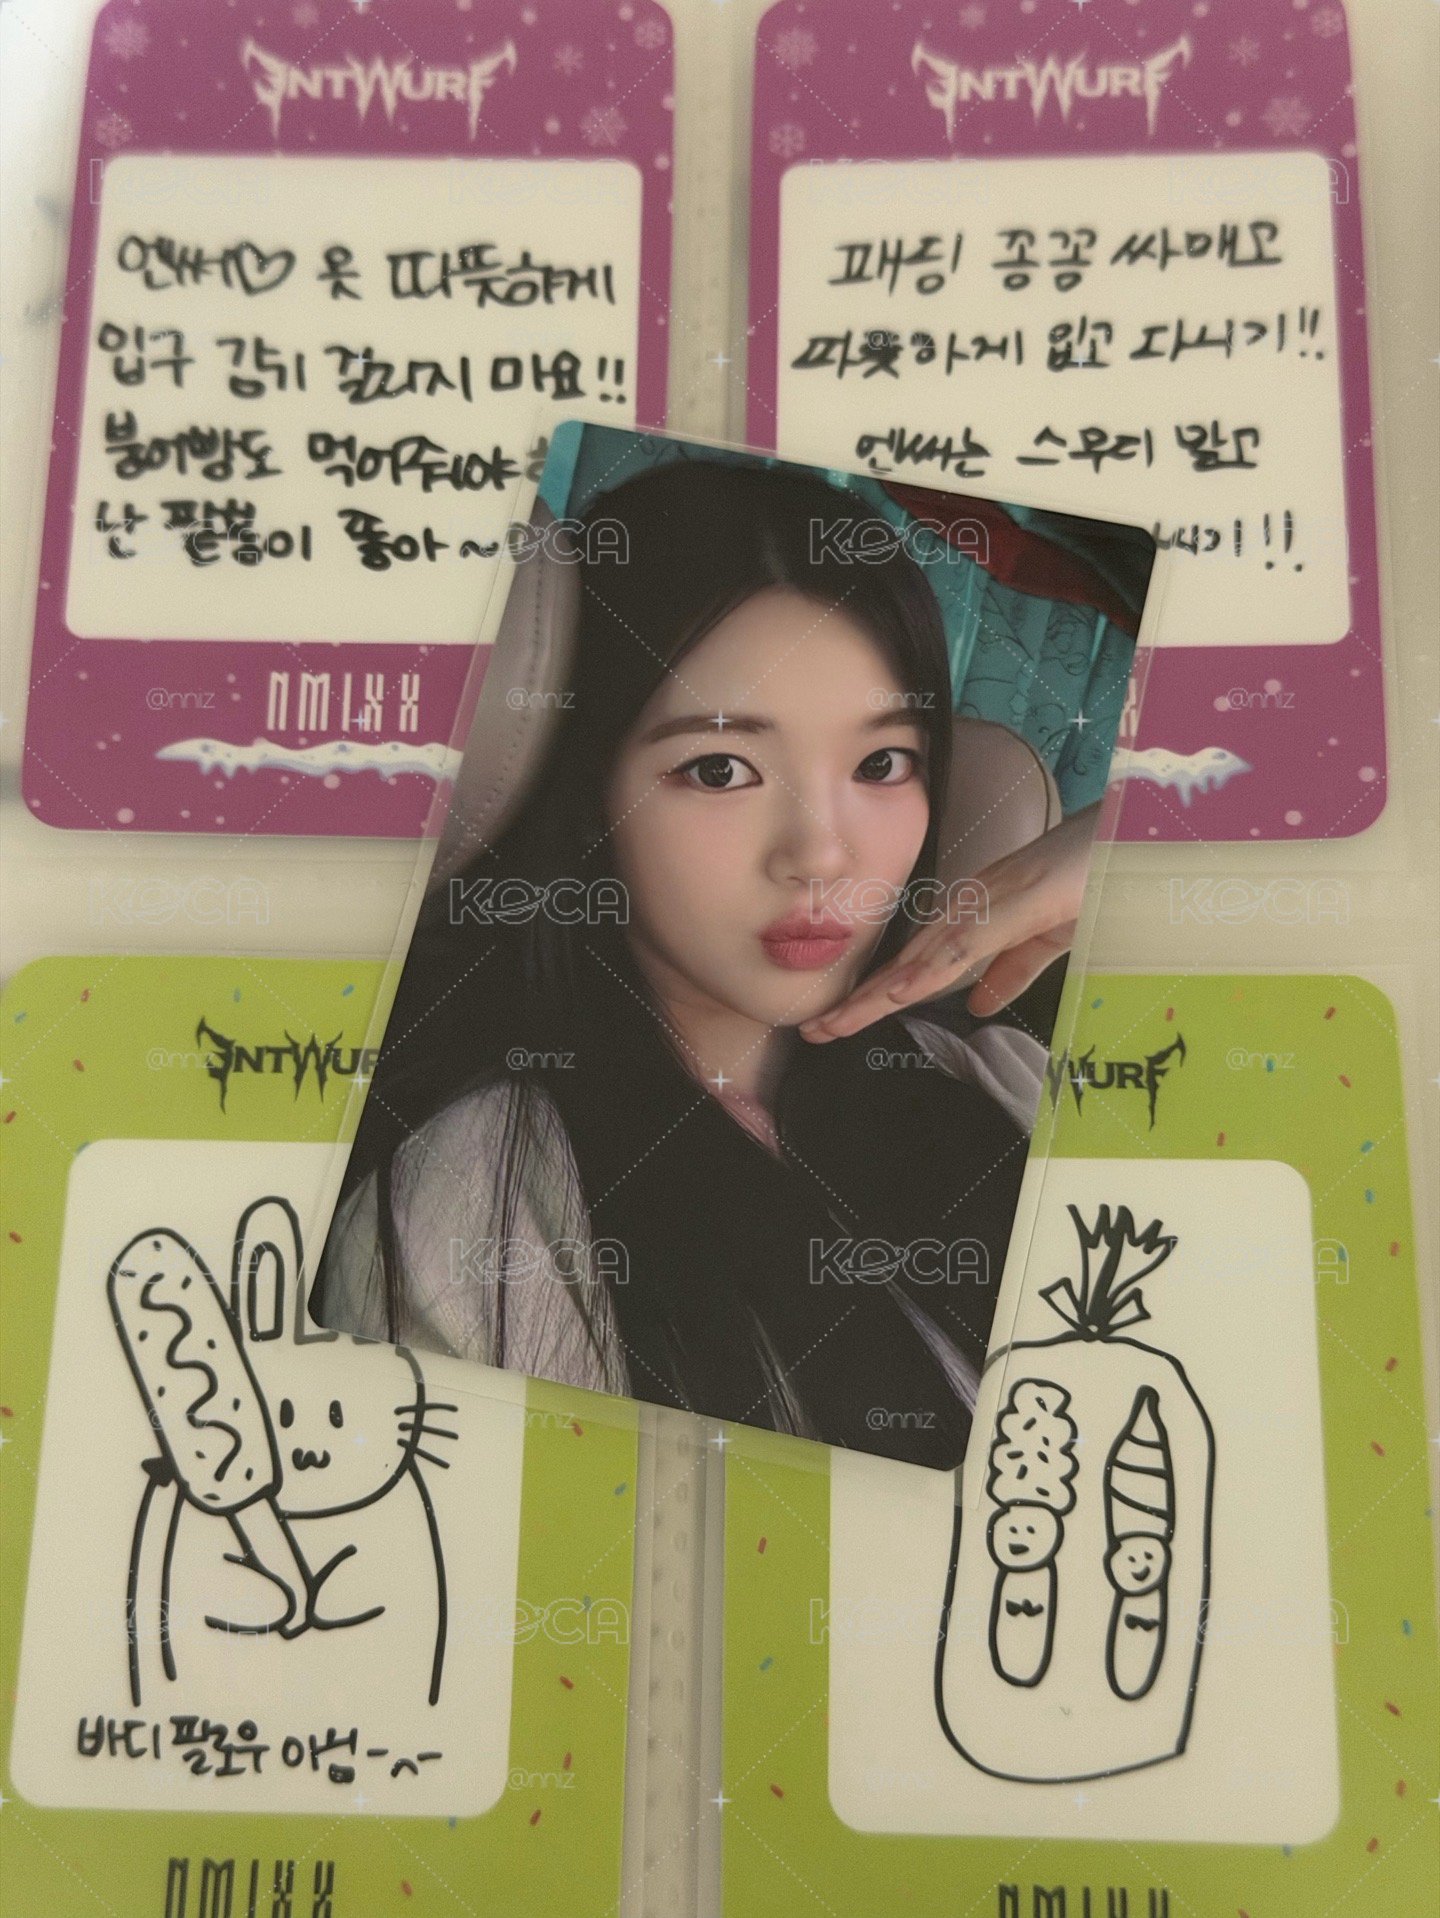 ENTWURF
엔써♡ 옷 따뜻하게
입구 감쥐 걸리지 마요!!
붕어빵도 먹어줘야
난 팥붕이 좋아~
NMIXX
ENTWURF
패딩 종꽁 싸매고
따뜻하게 입고 다니기!!
엔써는 스무디 말고
!!
X
ENTWUR
바디 팔로우 아섬
NMIXX
WURF
NMIXX
KOCA
@nniz